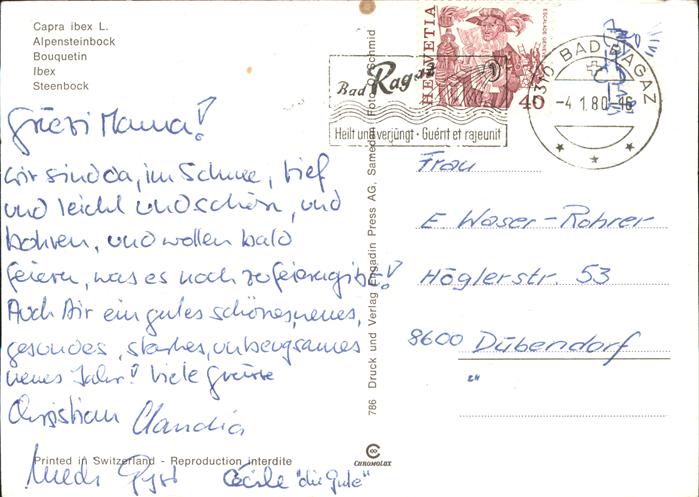 Capra ibex L.
Alpensteinbock
Bouquetin
Ibex
Steenbock
Grüezi Mama!
wir sind da, im Schnee, tief
und leicht und schön, und
bohren, und wollen bald
feiern, was es noch zu feiern gibt!
Auch Dir ein gutes schönes, neues,
gesundes, starkes, unbeugsames
neues Jahr! Viele Grüsse
Christian Claudia
Cécile "die Gute"
Printed in Switzerland - Reproduction interdite
786 Druck und Verlag Engadin Press AG, Samedan Foto O. Schmid
CHROMOLUX
HELVETIA
ESCALADE GENÈVE
40
Bad Ragaz
Heilt und verjüngt - Guérit et rajeunit
7310 BAD RAGAZ
-4.1.80-16
Frau
E Waser-Rohrer
Höglerstr. 53
8600 Dübendorf
ZH